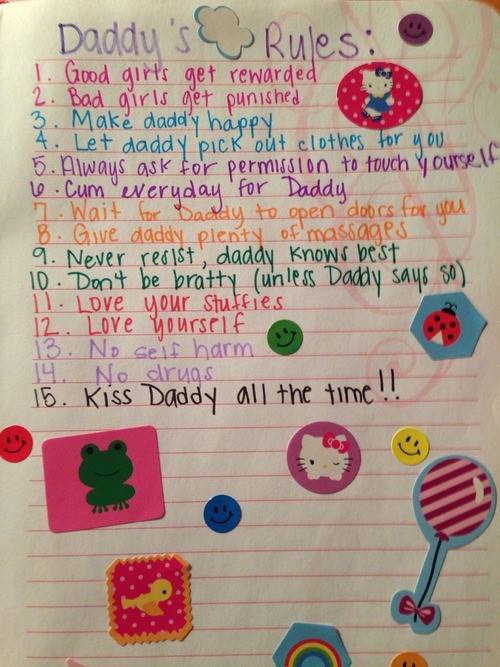 Daddy's Rules:
1. Good girls get rewarded
2. Bad girls get punished
3. Make daddy happy
4. Let daddy pick out clothes for you
5. Always ask for permission to touch yourself
6. Cum everyday for Daddy
7. Wait for Daddy to open doors for you
8. Give daddy plenty of massages
9. Never resist, daddy knows best
10. Don't be bratty (unless Daddy says so)
11. Love your stuffies
12. Love yourself
13. No self harm
14. No drugs
15. Kiss Daddy all the time!!